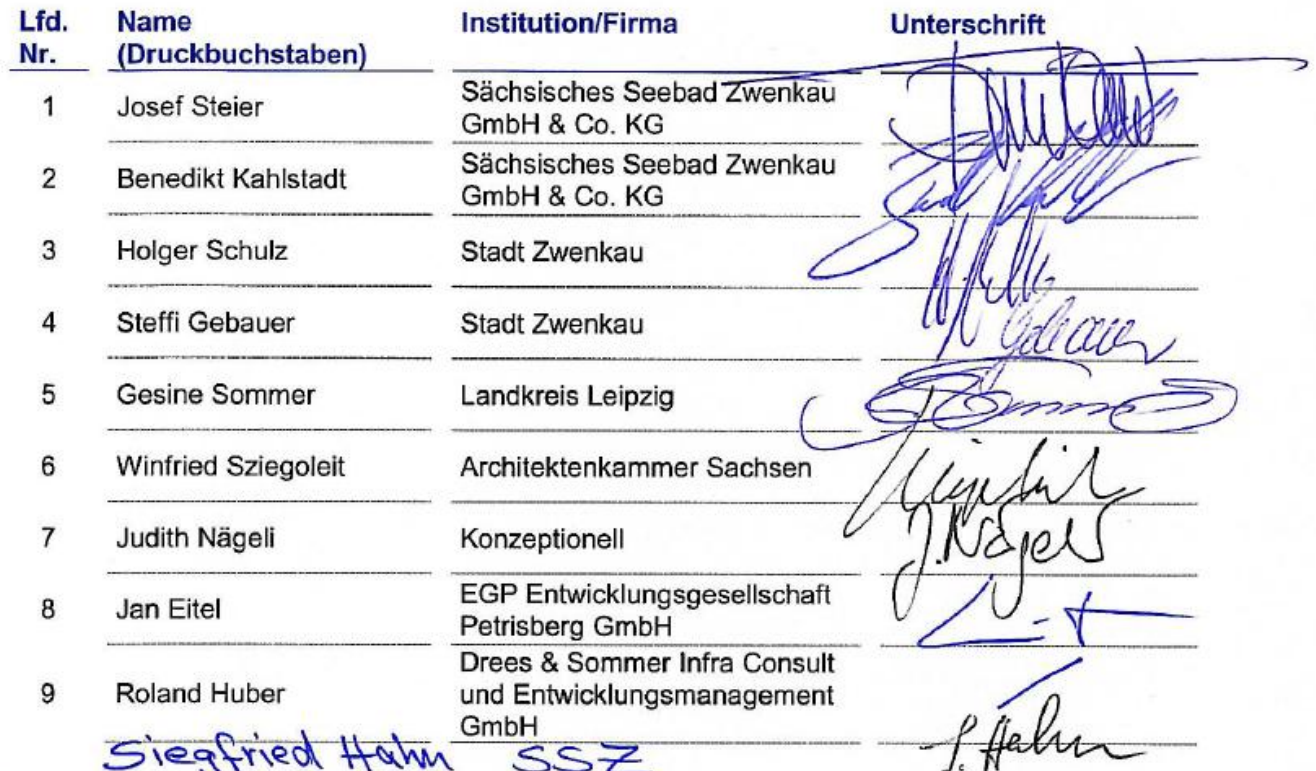 Lfd. Name Institution/Firma Unterschrift
Nr. (Druckbuchstaben)
1 Josef Steier Sächsisches Seebad Zwenkau
GmbH & Co. KG
2 Benedikt Kahlstadt Sächsisches Seebad Zwenkau
GmbH & Co. KG
3 Holger Schulz Stadt Zwenkau
4 Steffi Gebauer Stadt Zwenkau
5 Gesine Sommer Landkreis Leipzig
6 Winfried Sziegoleit Architektenkammer Sachsen
7 Judith Nägeli Konzeptionell J. Nägeli
8 Jan Eitel EGP Entwicklungsgesellschaft
Petrisberg GmbH
9 Roland Huber Drees & Sommer Infra Consult
und Entwicklungsmanagement
GmbH
Siegfried Hahn SSZ S. Hahn